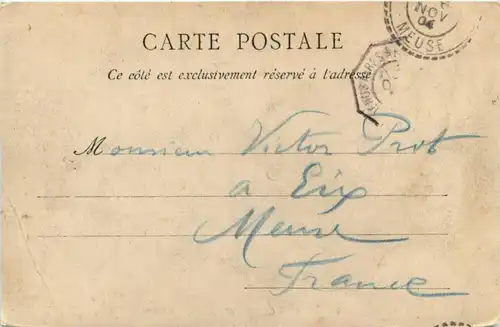 NOV
04
MEUSE
CARTE POSTALE
Ce côté est exclusivement réservé à l'adresse
Monsieur Victor Prot
a Eix
Meuse
France